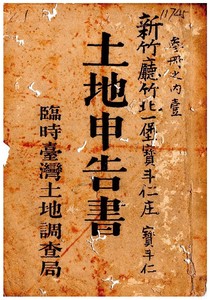 11745
參冊之内壹
新竹廳竹北一堡寶斗仁庄 寶斗仁
土地申告書
臨時臺灣土地調查局